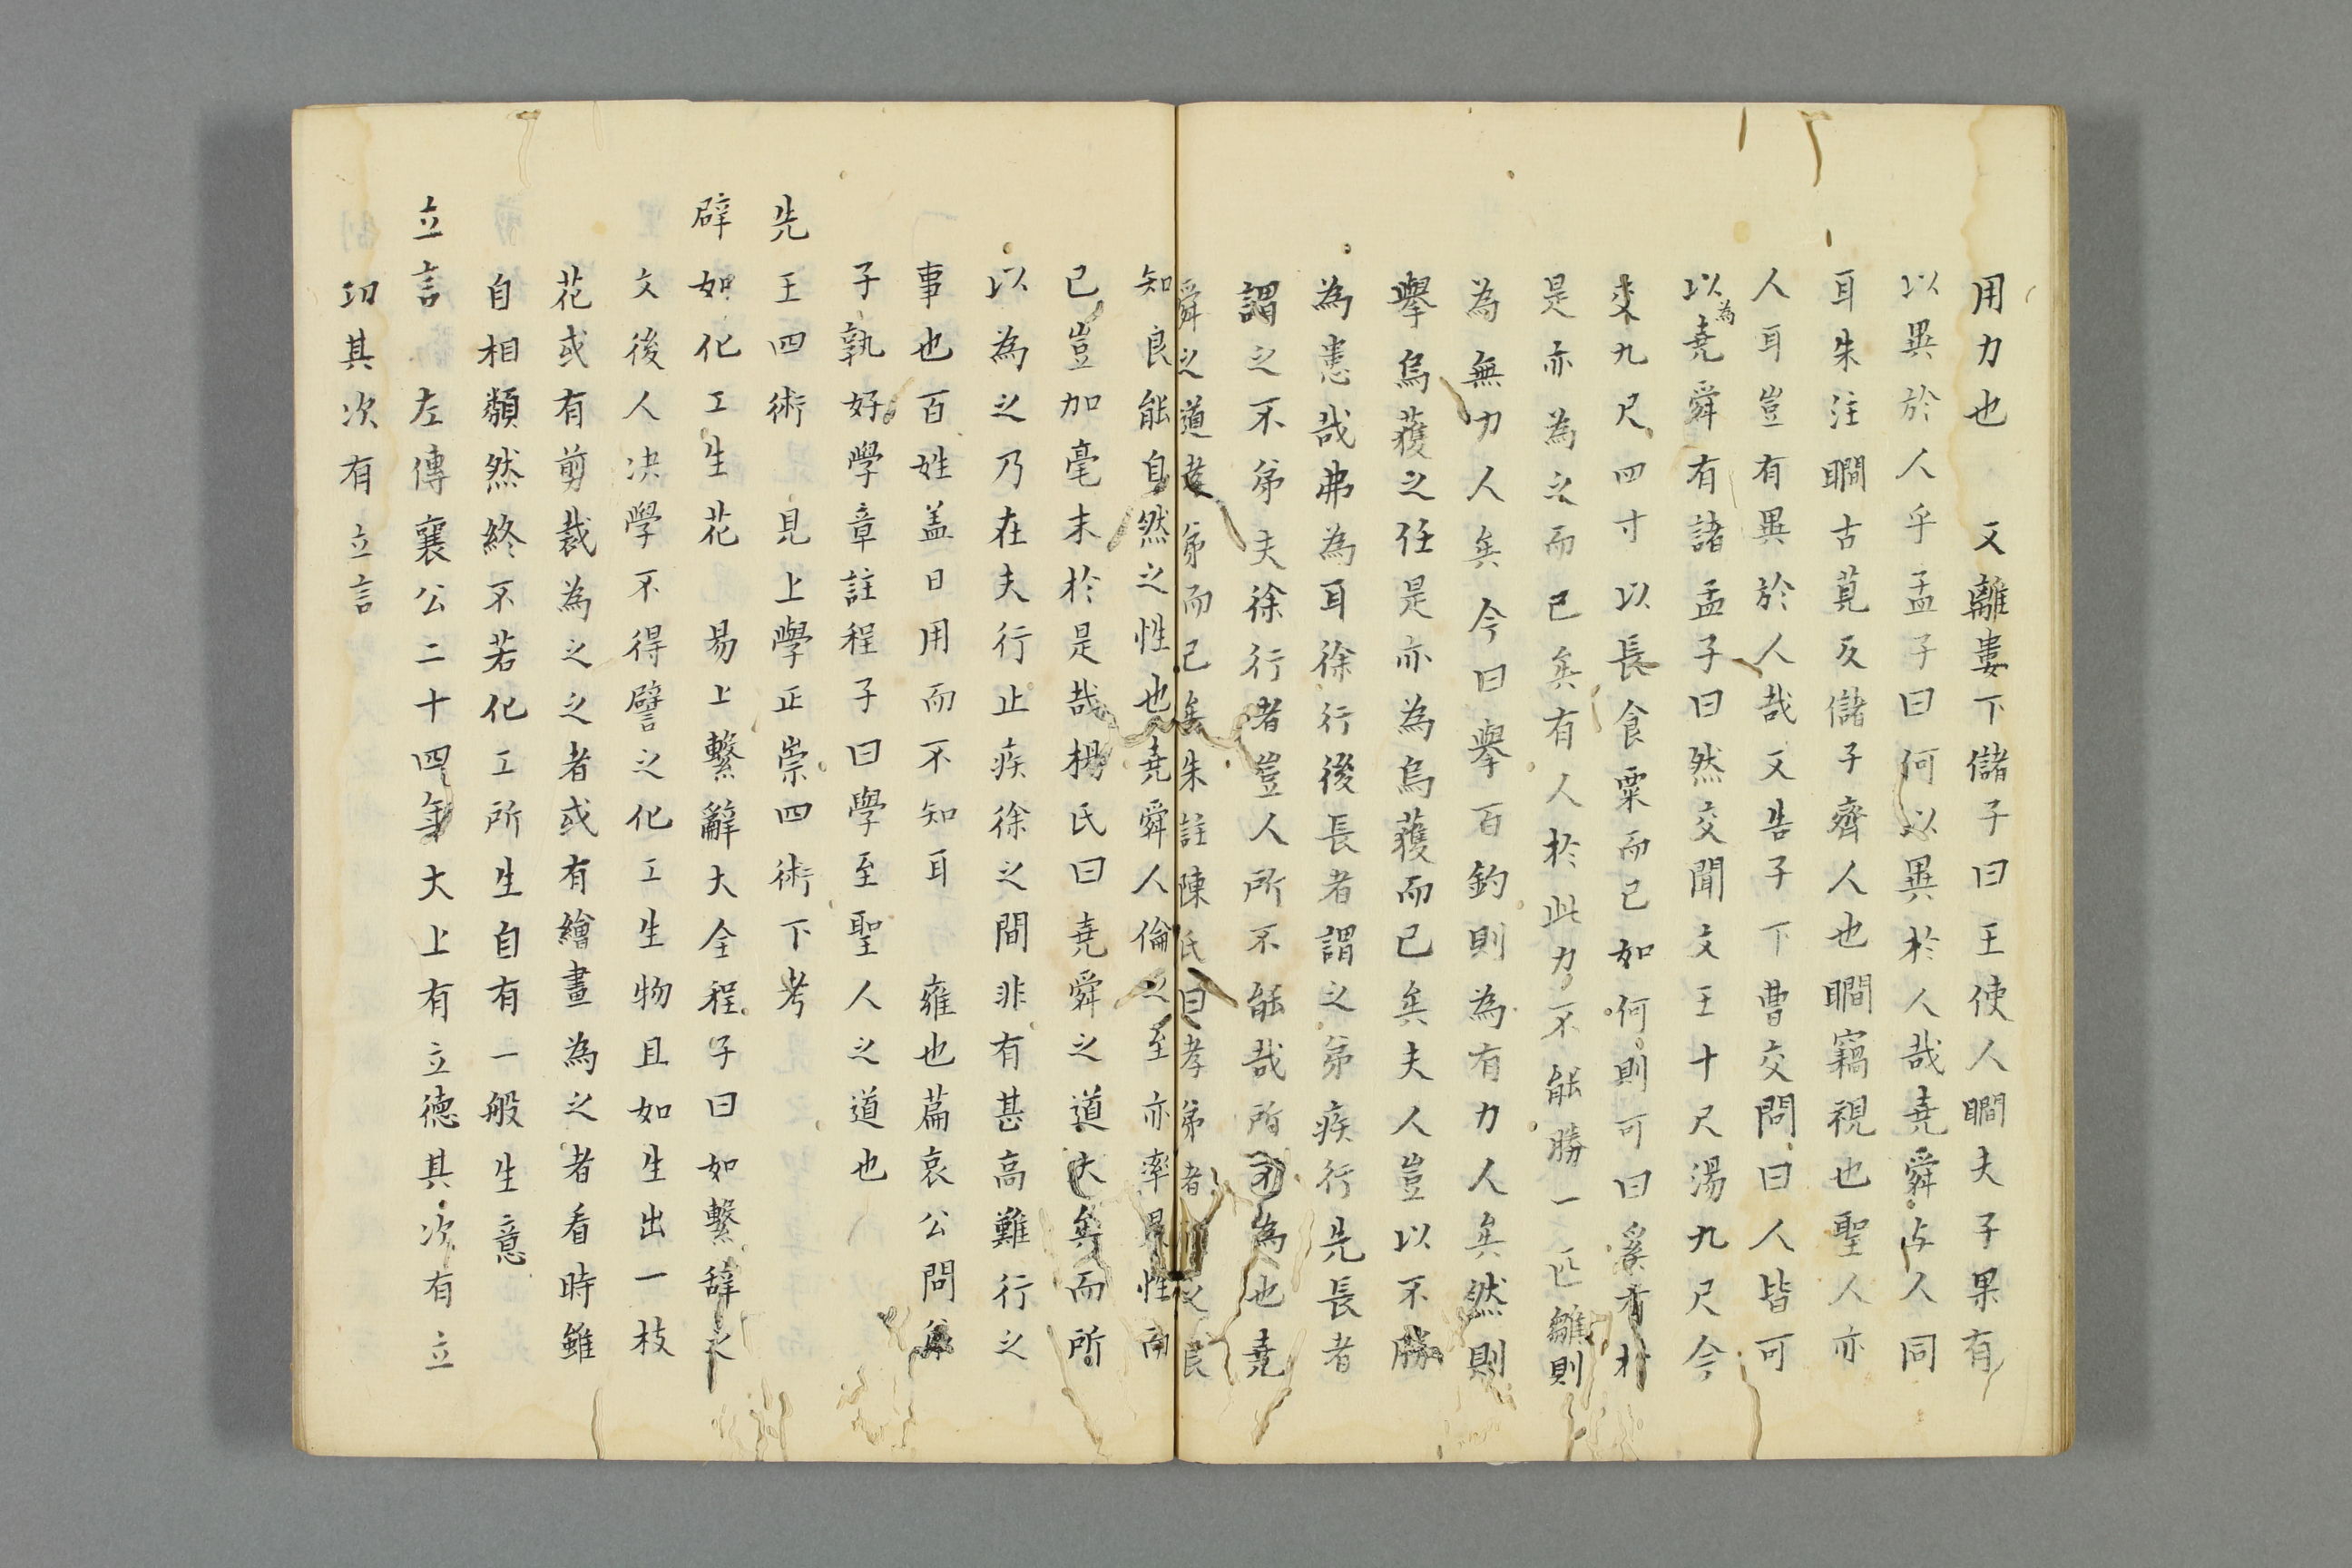 用力也　又離婁下儲子曰王使人瞯夫子果有
以異於人乎孟子曰何以異於人哉堯舜与人同
耳朱注瞯古莧反儲子齊人也瞯竊視也聖人亦
人耳豈有異於人哉又告子下曹交問曰人皆可
以為堯舜有諸孟子曰然交聞文王十尺湯九尺今
交九尺四寸以長食粟而已如何則可曰奚有於
是亦為之而已矣有人於此力不能勝一匹雛則
為無力人矣今曰擧百鈞則為有力人矣然則
擧烏獲之任是亦為烏獲而已矣夫人豈以不勝
為患哉弗為耳徐行後長者謂之弟疾行先長者
謂之不弟夫徐行者豈人所不能哉所不為也堯
舜之道孝弟而已矣朱註陳氏曰孝弟者之良
知良能自然之性也堯舜人倫之至亦率是性而
已豈加毫末於是哉楊氏曰堯舜之道大矣而所
以為之乃在夫行止疾徐之間非有甚高難行之
事也百姓盖日用而不知耳　雍也篇哀公問弟
子孰好學章註程子曰學至聖人之道也
先王四術　見上學正崇四術下考
辟如化工生花　易上繫辭大全程子曰如繫辞之
文後人决學不得譬之化工生物且如生出一枝
花或有剪裁為之之者或有繪畫為之者看時雖
自相類然終不若化工所生自有一般生意
立言　左傳襄公二十四年大上有立德其次有立
功其次有立言